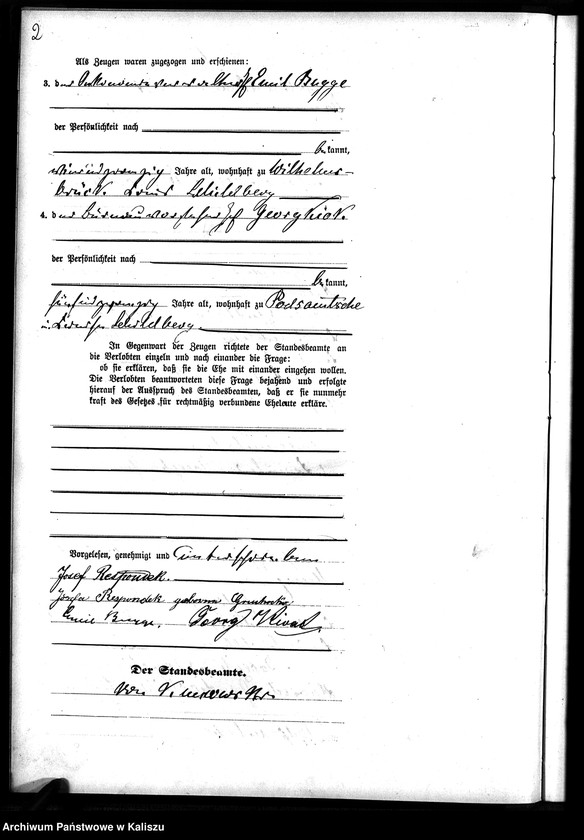 2
Als Zeugen waren zugezogen und erschienen:
3. der Emil Bugge
der Persönlichkeit nach
be kannt,
Jahre alt, wohnhaft zu Wilhelms-
brück, Kreis Schildberg
4. der Georg
der Persönlichkeit nach
be kannt,
fünfundzwanzig Jahre alt, wohnhaft zu Podsamtsche
Schildberg.
In Gegenwart der Zeugen richtete der Standesbeamte an
die Verlobten einzeln und nach einander die Frage:
ob sie erklären, daß sie die Ehe mit einander eingehen wollen.
Die Verlobten beantworteten diese Frage bejahend und erfolgte
hierauf der Ausspruch des Standesbeamten, daß er sie nunmehr
kraft des Gesetzes für rechtmäßig verbundene Eheleute erkläre.
Vorgelesen, genehmigt und unterschrieben
Josef Respondek.
Josefa Respondek geborene
Emil Bugge. Georg
Der Standesbeamte.
von
Archiwum Państwowe w Kaliszu